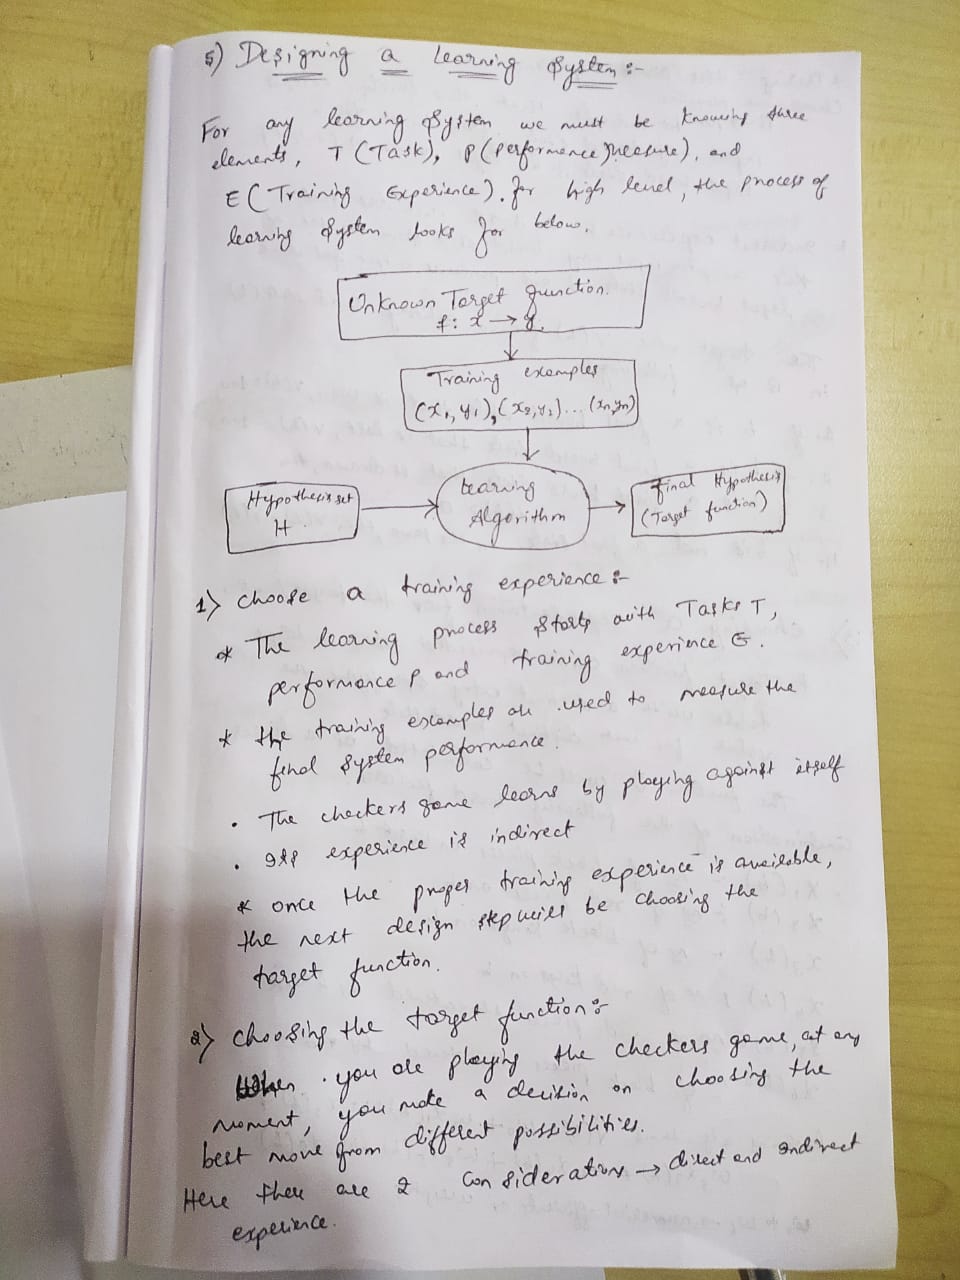 5) Designing a Learning System :-
For any learning System we must be knowing three
elements, T (Task), P (Performance Measure), and
E (Training Experience). for high level, the process of
learning System looks for below.
Unknown Target function.
f: x → y.
Training examples
(x1, y1), (x2, y2)... (xn, yn)
Hypothesis set
H
Learning
Algorithm
Final Hypothesis
(Target function)
1) choose a training experience :-
* The learning process starts with Tasks T,
performance P and training experience E.
* the training examples are used to measure the
final system performance.
• The checkers game learns by playing against itself
• Its experience is indirect
* once the proper training experience is available,
the next design step will be choosing the
target function.
2) choosing the target function :-
When you are playing the checkers game, at any
moment, you make a decision on choosing the
best move from different possibilities.
Here there are 2 considerations → direct and indirect
experience.